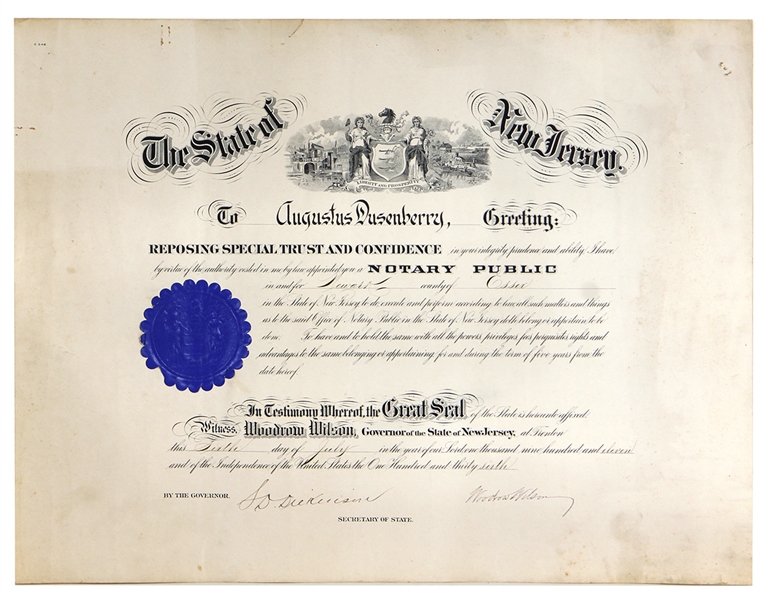 The State of New Jersey.
LIBERTY AND PROSPERITY
To Augustus Dusenberry, Greeting:
REPOSING SPECIAL TRUST AND CONFIDENCE in your integrity, prudence and ability, I have
by virtue of the authority vested in me by law appointed you a NOTARY PUBLIC
in and for Newark county of Essex
in the State of New Jersey to do execute and perform according to law, all such matters and things
as to the said Office of Notary Public in the State of New Jersey doth belong or appertain to be
done. To have and to hold the same with all the powers, privileges, fees, perquisites, rights and
advantages to the same belonging or appertaining for and during the term of five years from the
date hereof.
In Testimony Whereof, the Great Seal of the State is hereunto affixed.
Witness, Woodrow Wilson, Governor of the State of New Jersey, at Trenton
this day of July in the year of our Lord one thousand nine hundred and eleven
and of the Independence of the United States the One Hundred and thirty sixth
BY THE GOVERNOR. S.D. Dickinson Woodrow Wilson
SECRETARY OF STATE.